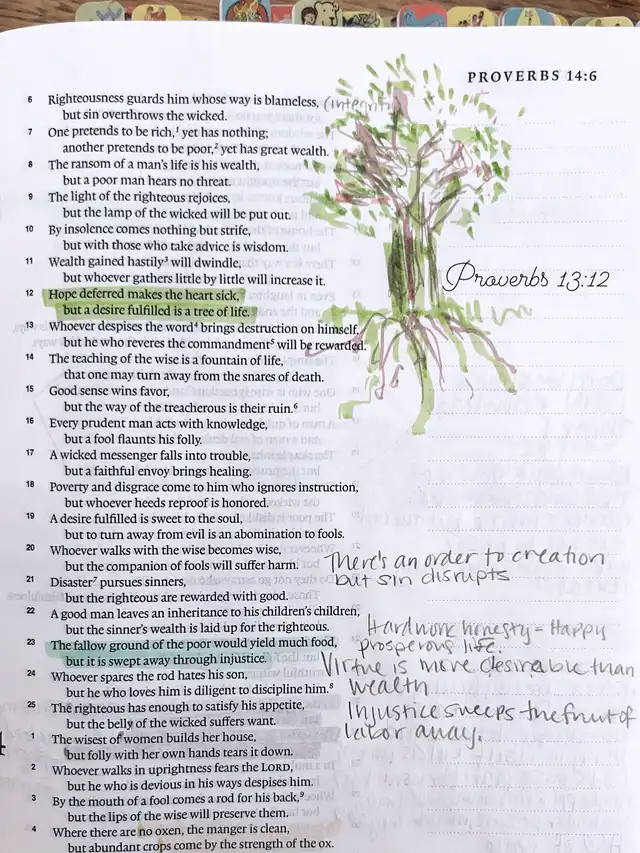 PROVERBS 14:6
6 Righteousness guards him whose way is blameless, (integrity)
but sin overthrows the wicked.
7 One pretends to be rich,1 yet has nothing;
another pretends to be poor,2 yet has great wealth.
8 The ransom of a man's life is his wealth,
but a poor man hears no threat.
9 The light of the righteous rejoices,
but the lamp of the wicked will be put out.
10 By insolence comes nothing but strife,
but with those who take advice is wisdom.
11 Wealth gained hastily3 will dwindle,
but whoever gathers little by little will increase it.
Proverbs 13:12
12 Hope deferred makes the heart sick,
but a desire fulfilled is a tree of life.
13 Whoever despises the word4 brings destruction on himself,
but he who reveres the commandment5 will be rewarded.
14 The teaching of the wise is a fountain of life,
that one may turn away from the snares of death.
15 Good sense wins favor,
but the way of the treacherous is their ruin.6
16 Every prudent man acts with knowledge,
but a fool flaunts his folly.
17 A wicked messenger falls into trouble,
but a faithful envoy brings healing.
18 Poverty and disgrace come to him who ignores instruction,
but whoever heeds reproof is honored.
19 A desire fulfilled is sweet to the soul,
but to turn away from evil is an abomination to fools.
20 Whoever walks with the wise becomes wise,
but the companion of fools will suffer harm.
There's an order to creation
but sin disrupts
21 Disaster7 pursues sinners,
but the righteous are rewarded with good.
22 A good man leaves an inheritance to his children's children,
but the sinner's wealth is laid up for the righteous.
Hardwork honesty = Happy
prosperous life.
23 The fallow ground of the poor would yield much food,
but it is swept away through injustice.
Virtue is more desirable than
wealth
24 Whoever spares the rod hates his son,
but he who loves him is diligent to discipline him.8
25 The righteous has enough to satisfy his appetite,
but the belly of the wicked suffers want.
Injustice sweeps the fruit of
labor away.
1 The wisest of women builds her house,
but folly with her own hands tears it down.
2 Whoever walks in uprightness fears the LORD,
but he who is devious in his ways despises him.
3 By the mouth of a fool comes a rod for his back,9
but the lips of the wise will preserve them.
4 Where there are no oxen, the manger is clean,
but abundant crops come by the strength of the ox.